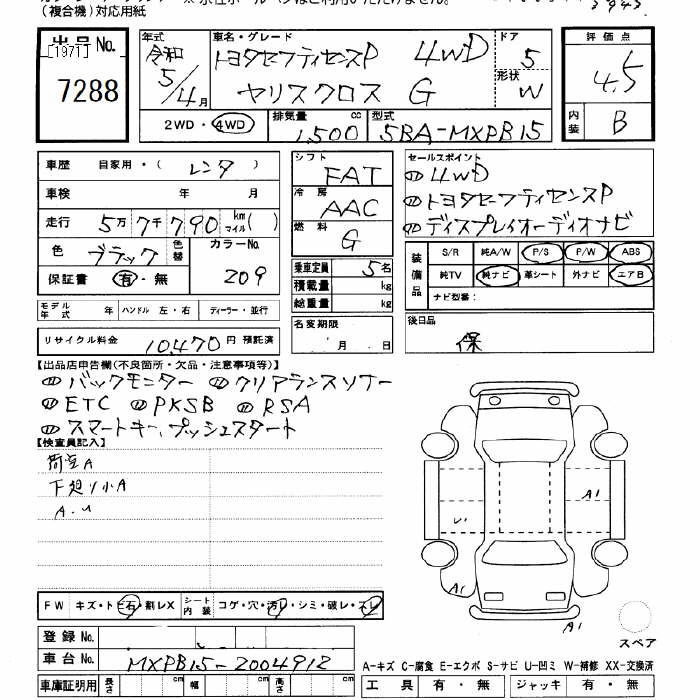 (複合機)対応用紙
出品No.
[1971]
7288
年式
令和
5/4月
車名・グレード
トヨタセーフティセンスP 4WD
ヤリスクロス G
ドア
5
形状
W
評価点
4.5
内装
B
2WD・4WD
排気量
1,500 cc
型式
5BA-MXPB15
車歴 自家用・( レンタ )
車検 年 月
走行 5万7千790 km マイル( )
色 ブラック 色替
カラーNo.
209
保証書 有・無
シフト
FAT
冷房
AAC
燃料
G
乗車定員 5名
積載量 kg
総重量 kg
セールスポイント
① 4WD
② トヨタセーフティセンスP
③ ディスプレイオーディオナビ
装備品
S/R 純A/W P/S P/W ABS
純TV 純ナビ 革シート 外ナビ エアB
ナビ型番:
モデル年式 年 ハンドル 左・右 ディーラー・並行
リサイクル料金 10,470 円 預託済
名変期限
月 日
後日品
保
【出品店申告欄(不良箇所・欠品・注意事項等)】
④ バックモニター ⑤ クリアランスソナー
⑥ ETC ⑦ PKSB ⑧ RSA
⑨ スマートキー、プッシュスタート
【検査員記入】
荷室A
下廻り小A
A.U
A1
U1
A1
A1
FW キズ・トビ石・割レX
シート内装 コゲ・穴・汚レ・シミ・破レ・スレ
スペア
登録No.
車台No. MXPB15-2004912
A-キズ C-腐食 E-エクボ S-サビ U-凹ミ W-補修 XX-交換済
車庫証明用 長さ cm 幅 cm 高さ cm
工具 有・無 ジャッキ 有・無